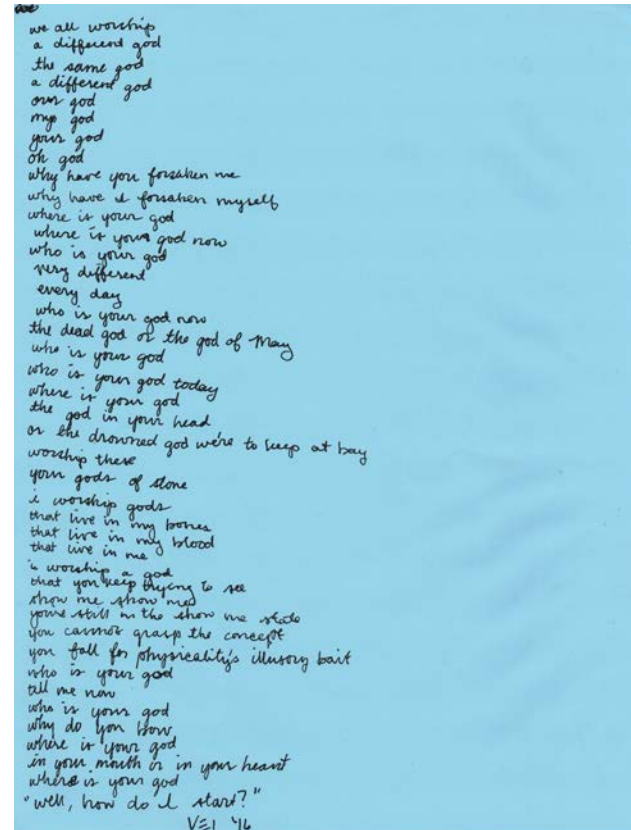 we all worship
a different god
the same god
a different god
our god
my god
your god
oh god
why have you forsaken me
why have I forsaken myself
where is your god
where is your god now
who is your god
very different
every day
who is your god now
the dead god or the god of May
who is your god
who is your god today
where is your god
the god in your head
or the drowned god we're to keep at bay
worship these
your gods of stone
i worship gods
that live in my bones
that live in my blood
that live in me
i worship a god
that you keep trying to see
show me show me
you're still in the show me state
you cannot grasp the concept
you fall for physicality's illusory bait
who is your god
tell me now
who is your god
why do you bow
where is your god
in your mouth or in your heart
where is your god
"well, how do I start?"
'16